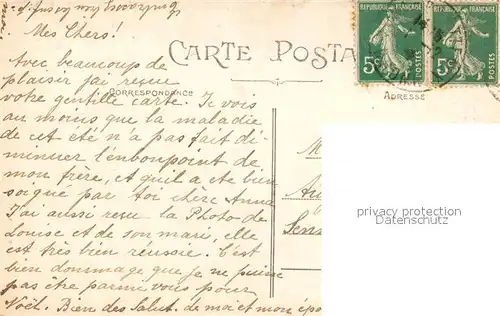 Mes Chers!
CARTE POSTA
RÉPUBLIQUE FRANÇAISE
RÉPUBLIQUE FRANÇAISE
5c POSTES
5c POSTES
Avec beaucoup de
plaisir j'ai reçue
CORRESPONDANCE
ADRESSE
votre gentille carte. Je vois
au moins que la maladie
de cet été n'a pas fait di-
minuer l'enboupoint de
mon frère, et qu'il a ete bien
soigné par toi chère Anna
J'ai aussi reçu la Photo de
Louise et de son mari, elle
est très bien réussie. C'est
bien dommage que je ne puisse
pas être parmi vous pour
Noël. Bien des Salut. de moi et mon épo
M
Au
Sens
privacy protection
Datenschutz